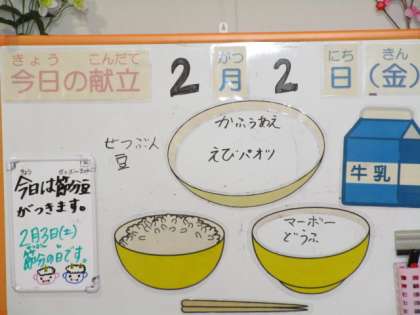 きょう こんだて がつ にち きん
今日の献立 2月2日(金)
せつぶん
豆
かふうあえ
えびパオツ
牛乳
マーボー
どうふ
今日は節分豆
がつきます。
2月3日(土)
節分の日です。